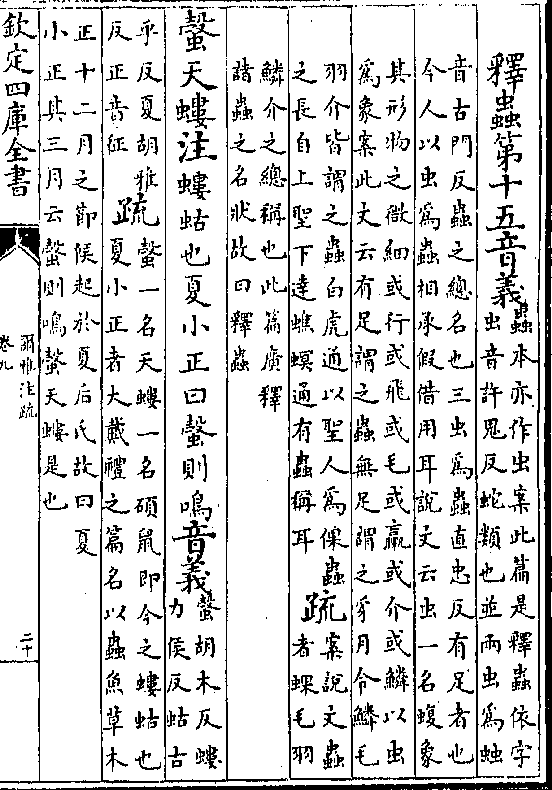 釋蟲第十五音義
蟲本亦作虫案此篇是釋蟲依字
虫音許鬼反蛇類也並兩虫爲䖵
音古門反蟲之總名也三虫爲蟲直忠反有足者也
今人以虫爲蟲相承假借用耳說文云虫一名蝮象
其形物之微細或行或飛或毛或蠃或介或鱗以虫
爲象案此文云有足謂之蟲無足謂之豸月令鱗毛
羽介皆謂之蟲白虎通以聖人爲倮蟲
之長自上聖下達蟭螟通有蟲稱耳
疏
案說文蟲
者蜾毛羽
鱗介之總稱也此篇廣釋
諸蟲之名狀故曰釋蟲
螜天螻注螻蛄也夏小正曰螜則鳴音義
螜胡木反螻
力侯反蛄古
乎反夏胡雅
反正音征
疏
螜一名天螻一名碩鼠即今之螻蛄也
夏小正者大戴禮之篇名以蟲魚草木
正十二月之節候起於夏后氏故曰夏
小正其三月云螜則鳴螜天螻是也
欽定四庫全書
爾雅注疏
卷九
二十